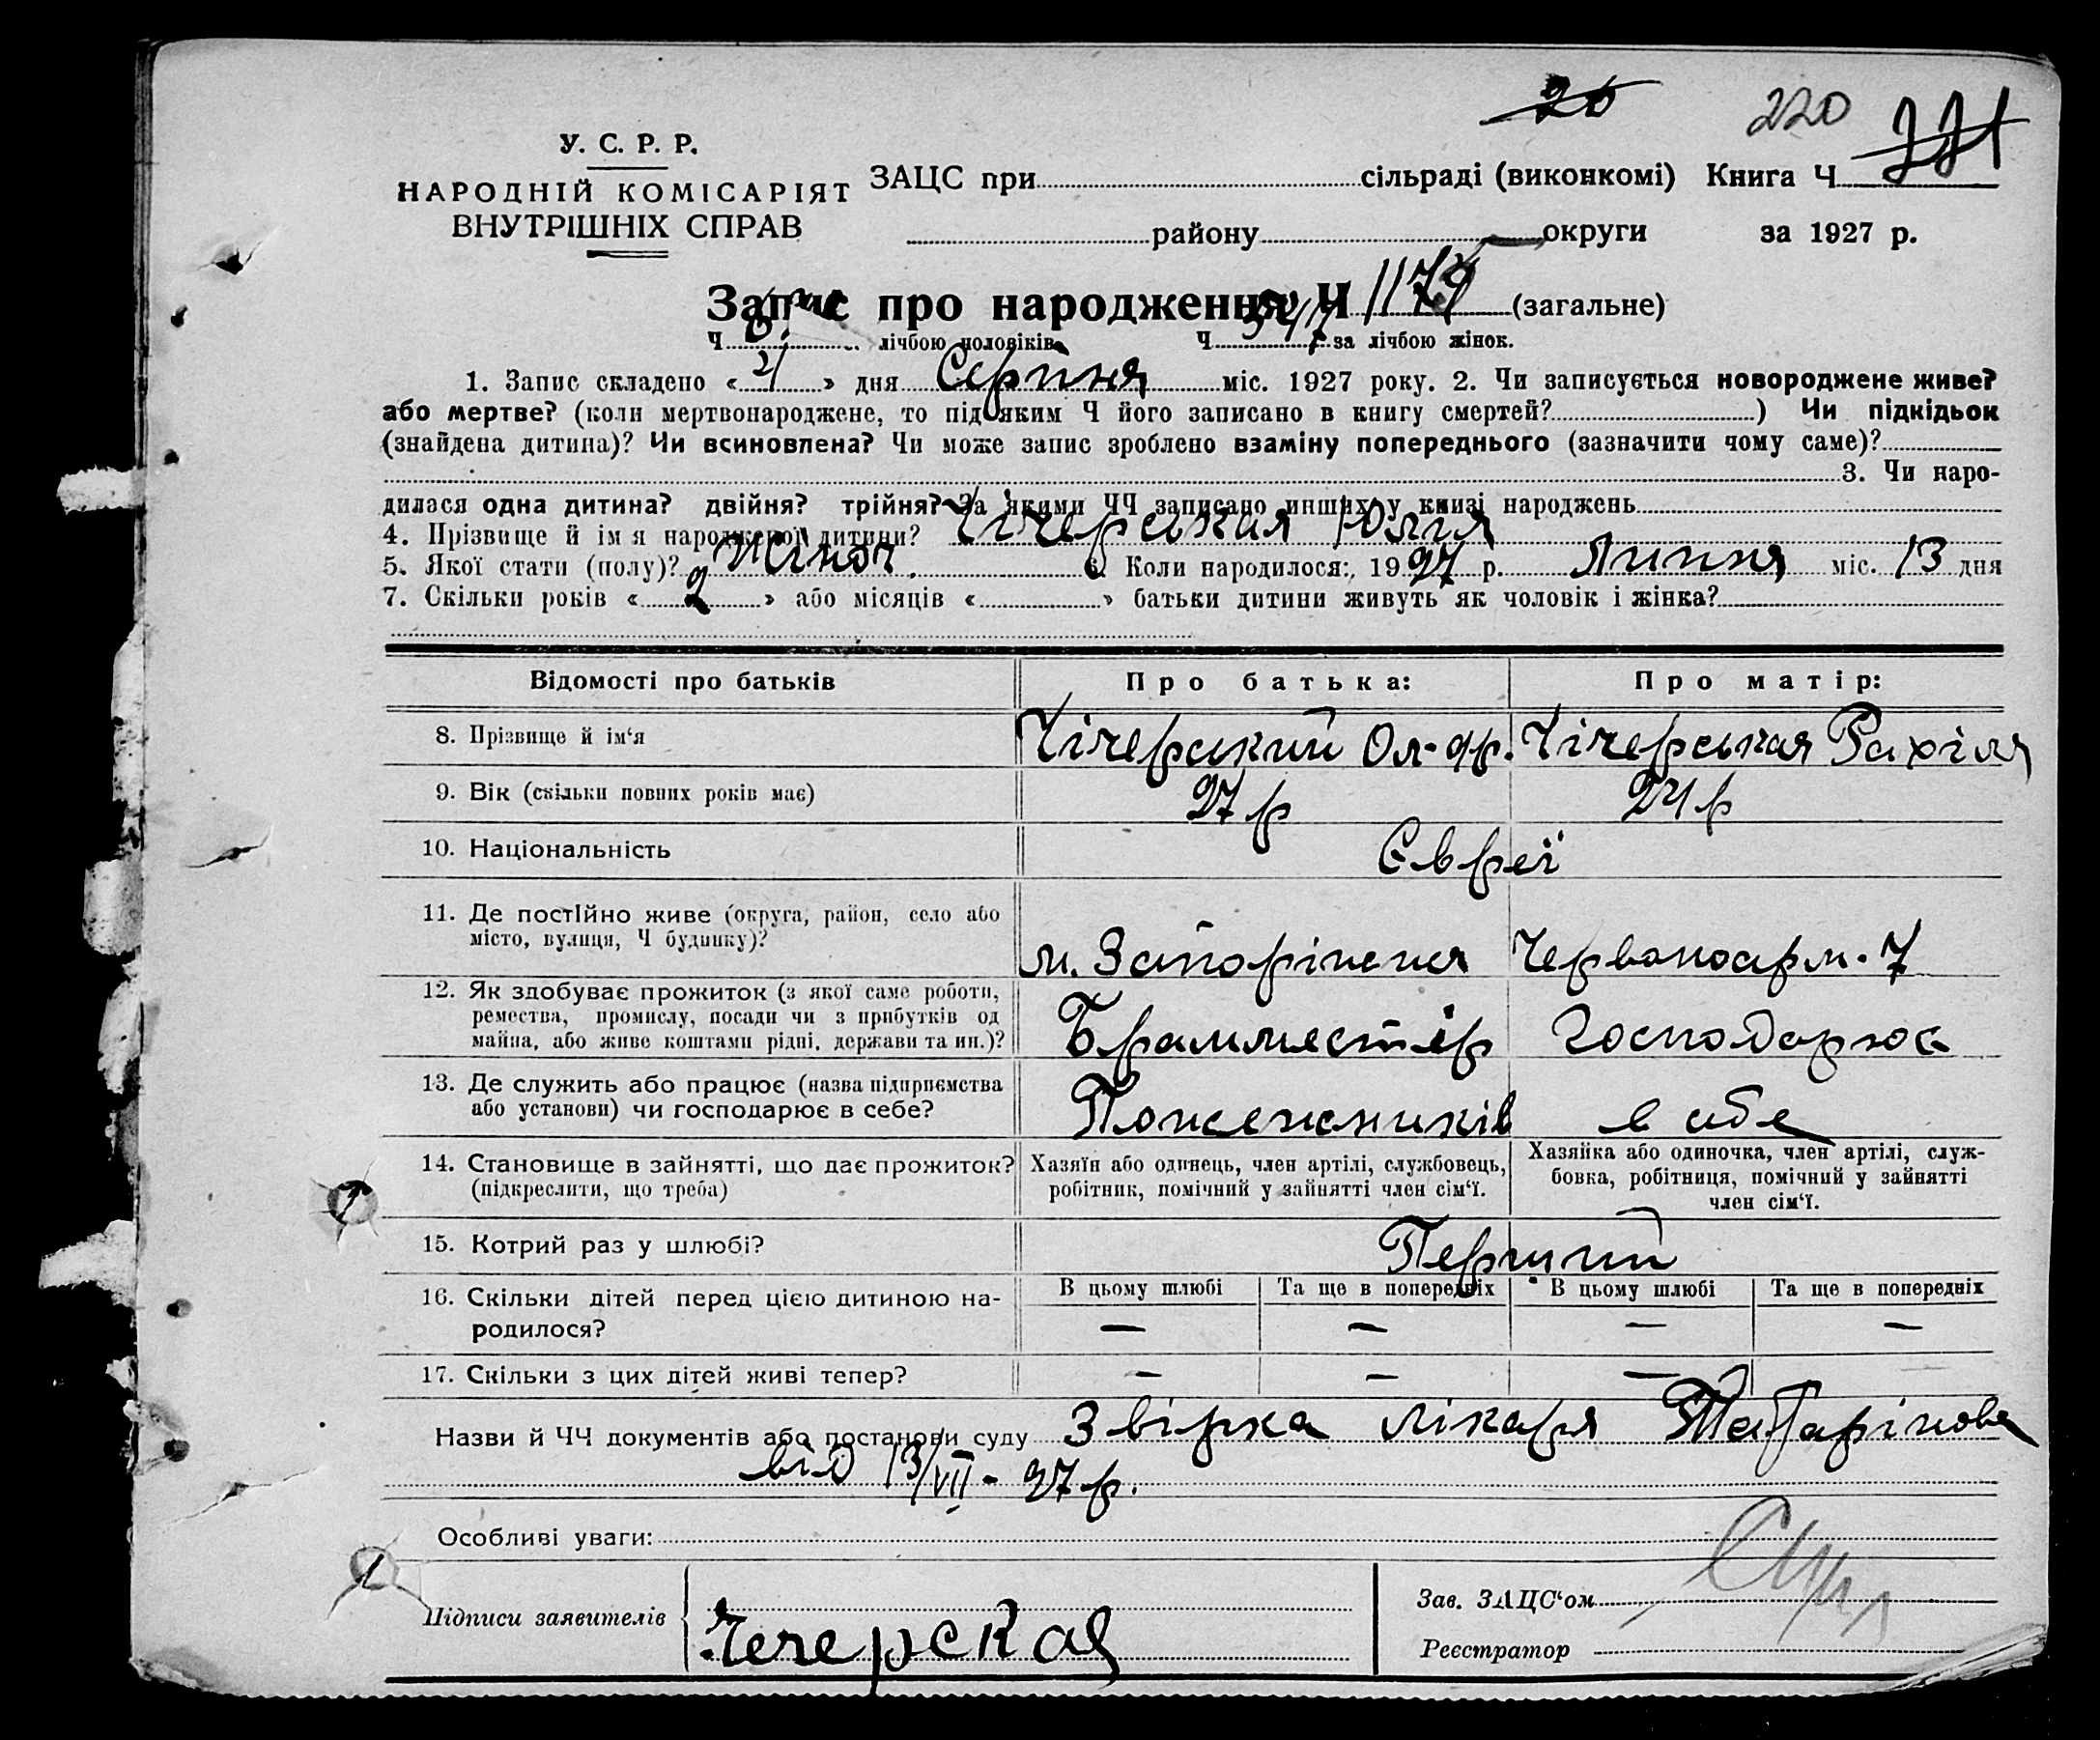 20 220 221
У. С. Р. Р.
НАРОДНІЙ КОМІСАРІЯТ
ВНУТРІШНІХ СПРАВ
ЗАЦС при сільраді (виконкомі) Книга Ч
району округи за 1927 р.
Запис про народження Ч 1174 (загальне)
Ч лічбою чоловіків Ч 547 за лічбою жінок.
1. Запис складено « 4 » дня Серпня міс. 1927 року. 2. Чи записується новороджене живе?
або мертве? (коли мертвонароджене, то під яким Ч його записано в книгу смертей? ) Чи підкідьок
(знайдена дитина)? Чи всиновлена? Чи може запис зроблено взаміну попереднього (зазначити чому саме)?
3. Чи наро-
дилася одна дитина? двійня? трійня? За якими ЧЧ записано инших у книзі народжень
4. Прізвище й ім я народженої дитини? Чічерськая Юлія
5. Якої стати (полу)? Жіноч. 6. Коли народилося: 1927 р. Липня міс. 13 дня
7. Скільки років « 2 » або місяців « » батьки дитини живуть як чоловік і жінка?
Відомості про батьків Про батька: Про матір:
8. Прізвище й ім‘я Чічерський Ол-др. Чічерськая Рахіля
9. Вік (скільки повних років має) 27 р 24 р
10. Національність Євреї
11. Де постІйно живе (округа, район, село або
місто, вулиця, Ч будинку)? м. Запоріжжя Червоноарм. 7
12. Як здобуває прожиток (з якої саме роботи,
ремества, промислу, посади чи з прибутків од
майна, або живе коштами рідні, держави та ин.)? Брамместєр Господарює
13. Де служить або працює (назва підприємства
або установи) чи господарює в себе? Пожежників в себе
14. Становище в зайнятті, що дає прожиток?
(підкреслити, що треба)
Хазяїн або одинець, член артілі, службовець,
робітник, помічний у зайнятті член сім‘ї.
Хазяйка або одиночка, член артілі, служ-
бовка, робітниця, помічний у зайнятті
член сім‘ї.
15. Котрий раз у шлюбі? Перший
16. Скільки дітей перед цією дитиною на-
родилося?
В цьому шлюбі Та ще в попередніх В цьому шлюбі Та ще в попередніх
— — — —
17. Скільки з цих дітей живі тепер? — — —
Назви й ЧЧ документів або постанови суду Звірка лікаря Татарінова
від 13/VII - 27 р.
Особливі уваги:
Підписи заявителів Чечерская
Зав. ЗАЦС‘ом
Реєстратор